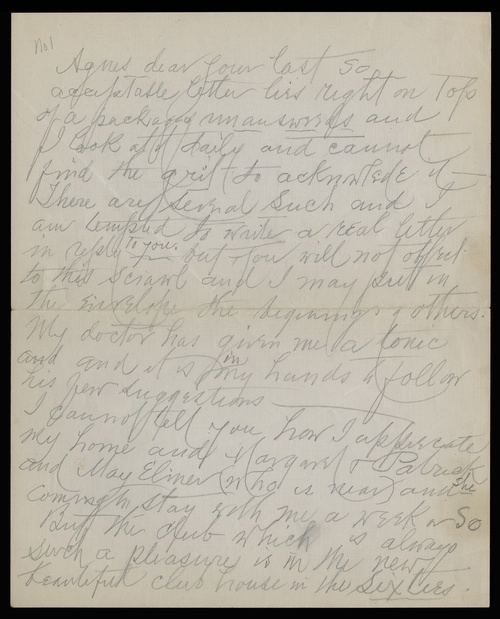 No 1
Agnes dear your last so
acceptable letter lies right on Top
of a package unanswered and
I look at it daily and cannot
find the grit to acknowledge it —
There are several such and I
am tempted to write a real letter
in reply to you. but you will not object
to this scrawl and I may put in
the envelope the beginnings of others.
My doctor has given me a tonic
and and it is in my hands to follow
his few suggestions
I cannot tell you how I appreciate
my home and Margaret & Patrick
and May Elmer (who is near) and she
coming to stay with me a week or so
But the club which is always
such a pleasure is in the new
beautiful club house in the Sixties.